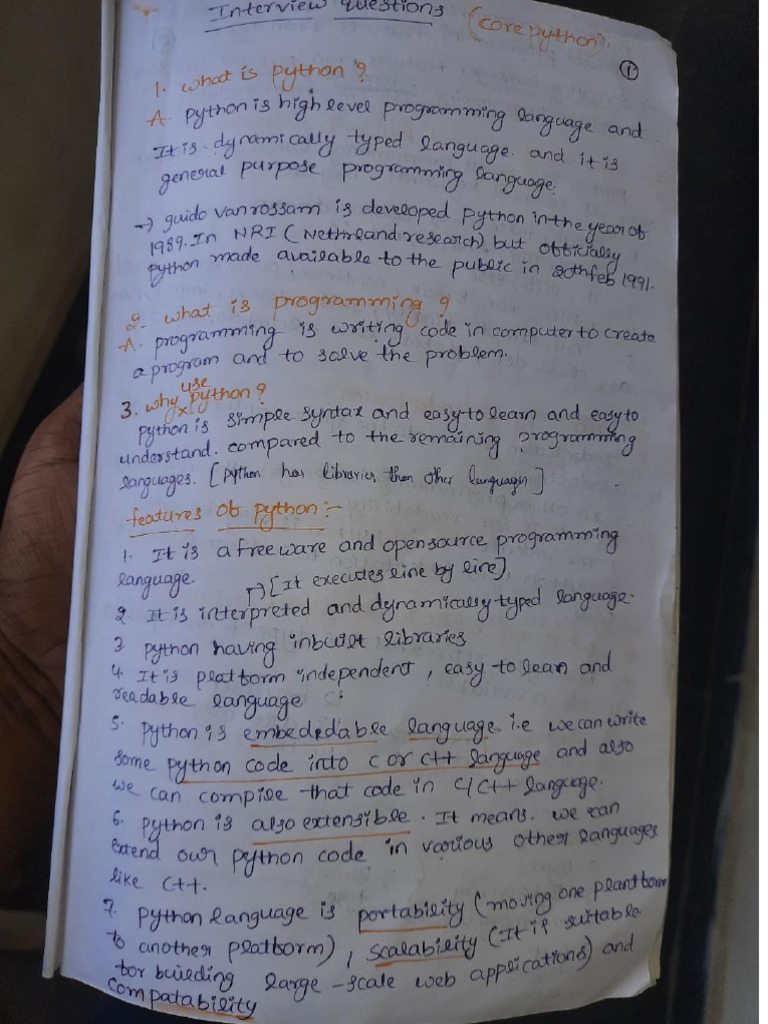 Interview Questions (core python)
1
1. what is python ?
A. python is high level programming language and
It is dynamically typed language. and it is
general purpose programming language.
→ guido vanrossam is developed python in the year of
1989. In NRI (Nethrland research) but officially
python made available to the public in 20th feb 1991.
2. what is programming ?
A. programming is writing code in computer to create
a program and to solve the problem.
3. why use python ?
python is simple syntax and easy to learn and easy to
understand. compared to the remaining programming
languages. [python has libraries then other languages]
features of python :-
1. It is a freeware and opensource programming
language.
→ [It executes line by line]
2. It is interpreted and dynamically typed language.
3. python having inbuilt libraries
4. It is platform independent, easy to learn and
readable language.
5. python is embededable language. i.e we can write
some python code into c or c++ language and also
we can compile that code in c/c++ language.
6. python is also extensible. It means. we can
Extend our python code in various other languages
like c++.
7. python language is portability (moving one plantform
to another platform), scalability (It is suitable
for building large-scale web applications) and
compatability